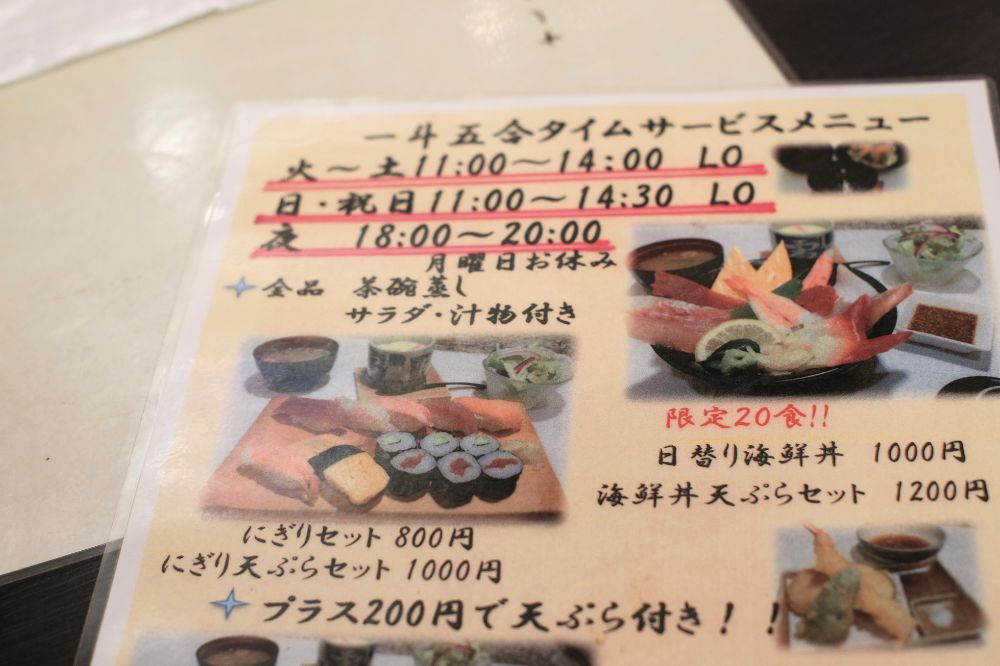 一斗五合タイムサービスメニュー
火～土11:00～14:00 LO
日・祝日11:00～14:30 LO
夜 18:00～20:00
月曜日お休み
全品 茶碗蒸し
サラダ・汁物付き
限定20食!!
日替り海鮮丼 1000円
海鮮丼天ぷらセット 1200円
にぎりセット 800円
にぎり天ぷらセット 1000円
プラス200円で天ぷら付き！！